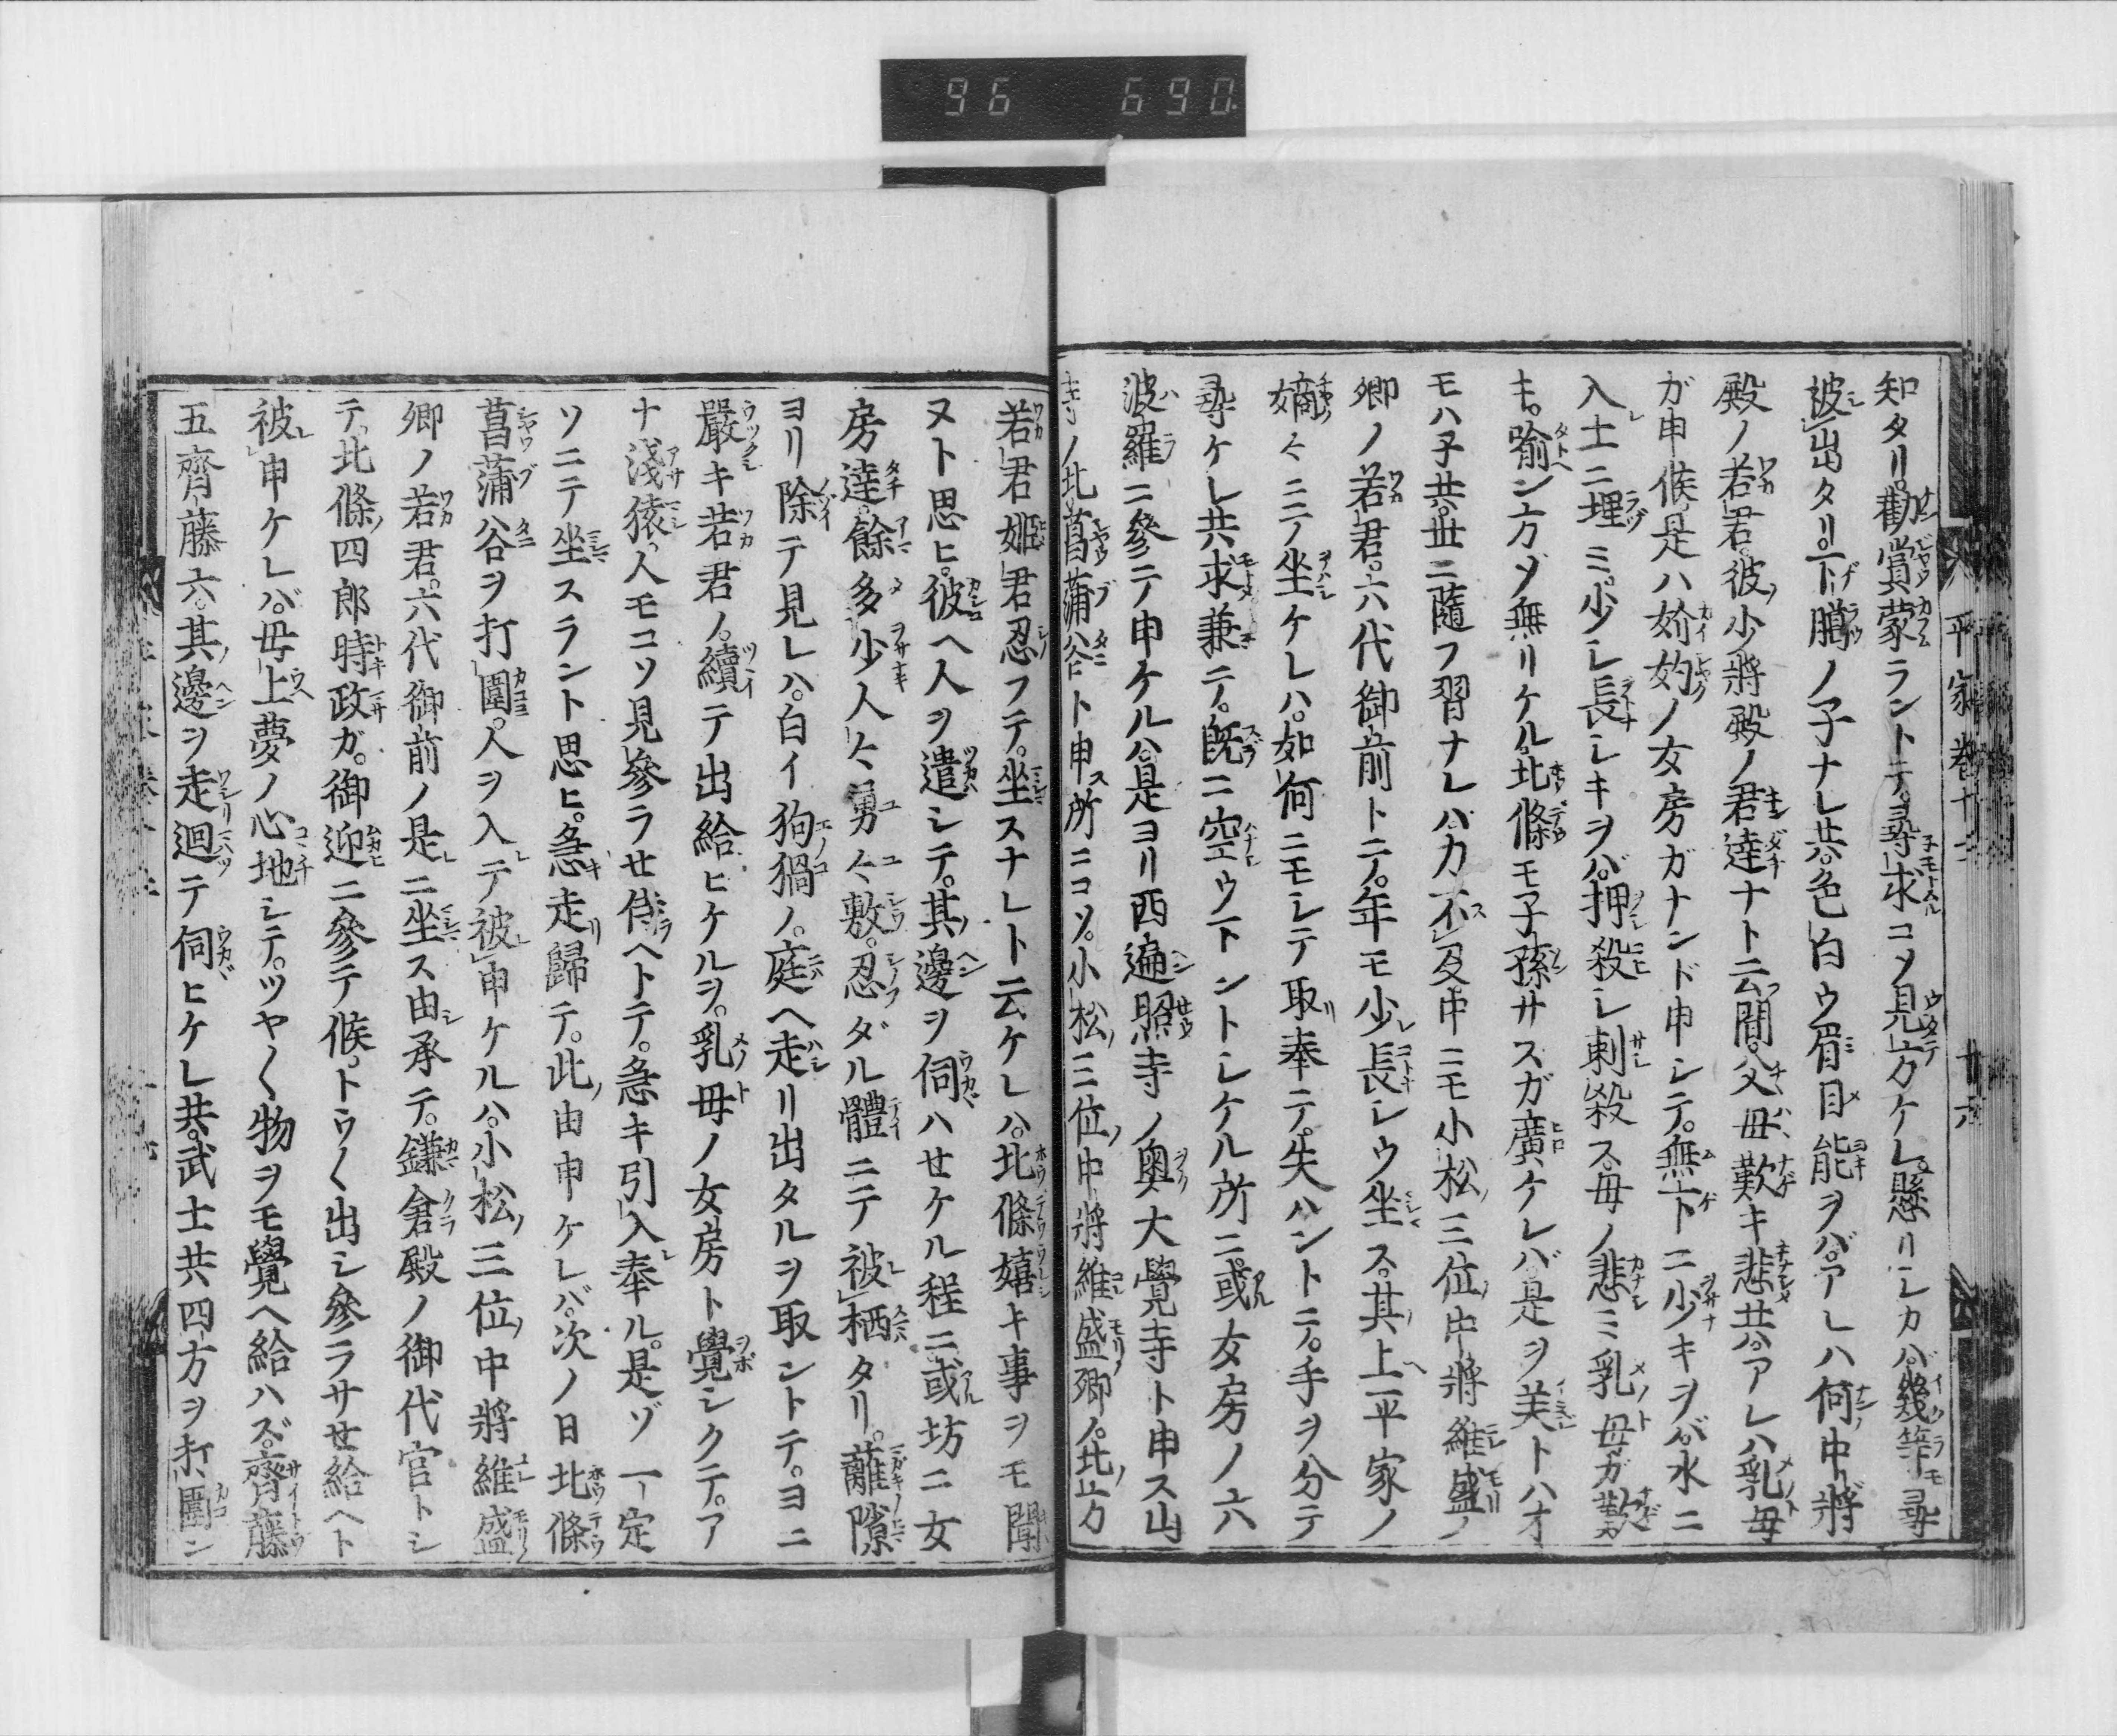 96 690.
平家巻十二 廿六
知タリ。勸賞蒙ラントテ。尋求コソ見方ケレ。懸リシカバ。幾等尋
被出タリ。下﨟ノ子ナレ共。色白ウ眉目能ヲバ。アレハ何中將
殿ノ若君。彼少將殿ノ君達ナト云間。父母歎キ悲共。アレハ乳母
ガ申候。是ハ妎妁ノ女房ガナンド申シテ。無下ニ少キヲバ。水ニ
入土ニ埋ミ。少シ長シキヲバ。押殺シ刺殺ス。母ノ悲ミ乳母ガ歎
キ。喻ン方ゾ無リケル。北條モ子孫サスガ廣ケレバ。是ヲ美トハオ
モハ子共。世ニ隨フ習ナレバ。力不及。中ニモ小松三位中將維盛ノ
卿ノ若君。六代御前トテ。年モ少長シウ坐ス。其上平家ノ
嫡々ニテ坐ケレハ。如何ニモシテ取奉テ。失ハントテ。手ヲ分テ
尋ケレ共。求兼テ。既ニ空ウ下ントシケル所ニ。或女房ノ六
波羅ニ參テ申ケルハ。是ヨリ西遍照寺ノ奧大覺寺ト申ス山
寺ノ北。菖蒲谷ト申ス所ニコソ。小松三位中將維盛卿ノ。北ノ方
若君姬君忍フテ。坐スナレト云ケレハ。北條嬉キ事ヲモ聞
ヌト思ヒ。彼ヘ人ヲ遣シテ。其邊ヲ伺ハセケル程ニ。或坊ニ女
房達。餘多少人々。勇々敷。忍ダル體ニテ被栖タリ。蘺隙
ヨリ除テ見レハ。白イ狗猧ノ。庭ヘ走リ出タルヲ取ントテ。ヨニ
嚴キ若君ノ。續テ出給ヒケルヲ。乳母ノ女房ト覺シクテ。ア
ナ淺猿。人モコソ見參ラセ候ヘトテ。急キ引入奉ル。是ゾ一定
ソニテ坐スラント思ヒ。急走歸テ。此由申ケレバ。次ノ日北條
菖蒲谷ヲ打圍。人ヲ入テ被申ケルハ。小松三位中將維盛
卿ノ若君。六代御前ノ是ニ坐ス由承テ。鎌倉殿ノ御代官トシ
テ。北條四郎時政ガ。御迎ニ參テ候。トウ〱出シ參ラサせ給ヘト
被申ケレバ。母上夢ノ心地シテ。ツヤ〱物ヲモ覺ヘ給ハズ。齊藤
五齊藤六。其邊ヲ走迴テ伺ヒケレ共。武士共四方ヲ打圍ン